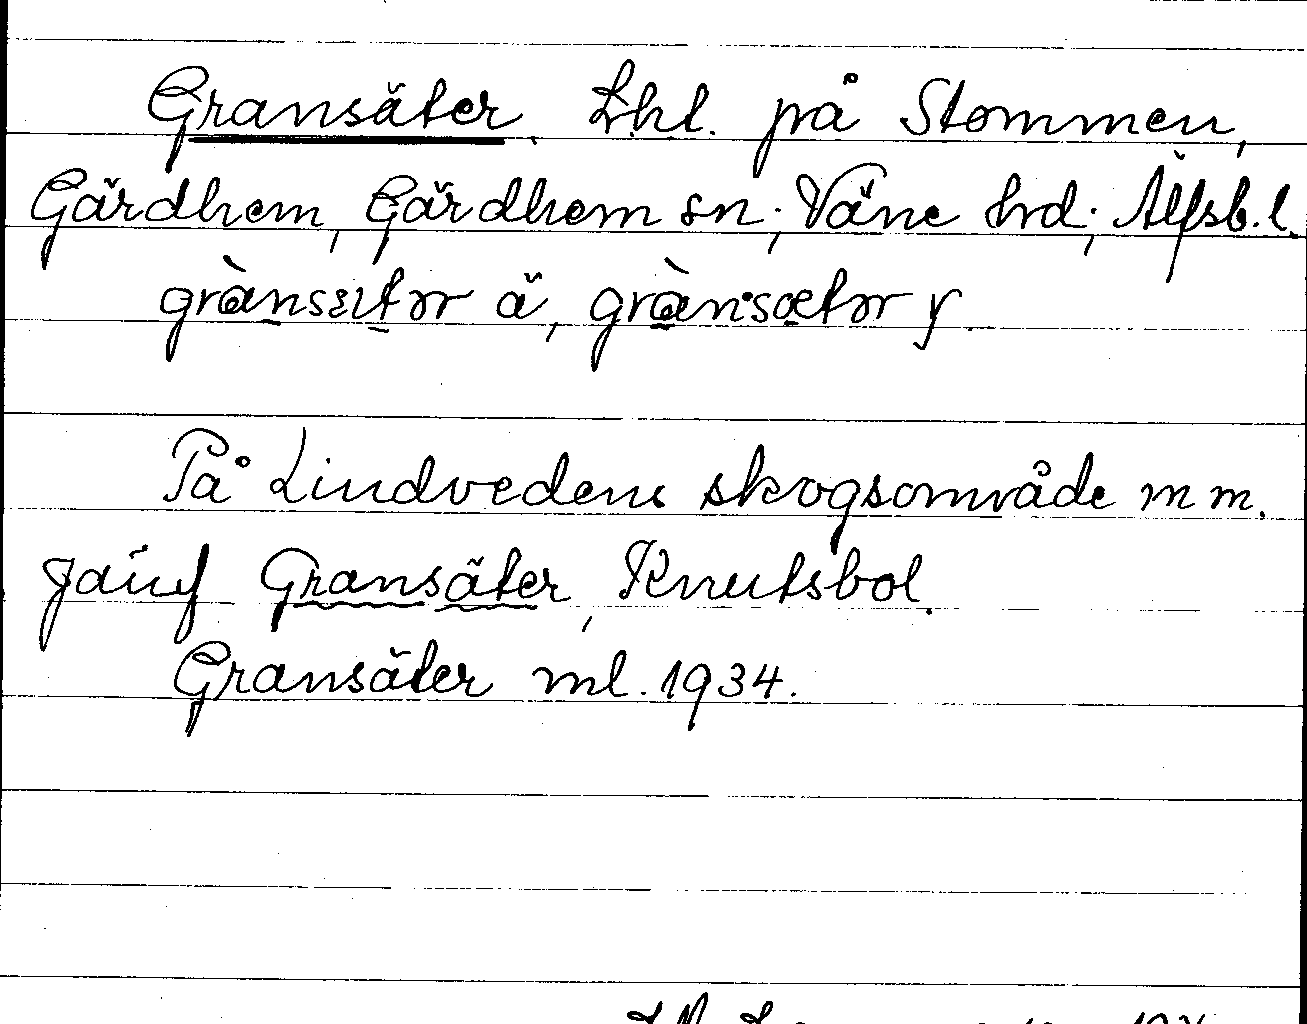 Gransäter. Lht. på Stommen,
Gärdhem, Gärdhem sn; Väne hd; Älfsb. l.
grànsætər ä, grànsætər y
På Lindvedens skogsområde m m.
jämf Gransäter, Knutsbol.
Gransäter ml. 1934.